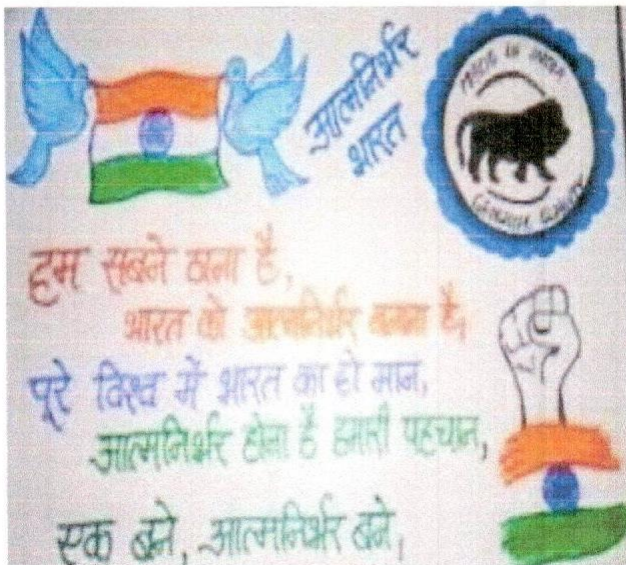 आत्मनिर्भर
भारत
MADE IN INDIA
GENUINE QUALITY
हम सबने ठाना है,
भारत को आत्मनिर्भर बनाना है,
पूरे विश्व में भारत का हो मान,
आत्मनिर्भर होना है हमारी पहचान,
एक बने, आत्मनिर्भर बने,